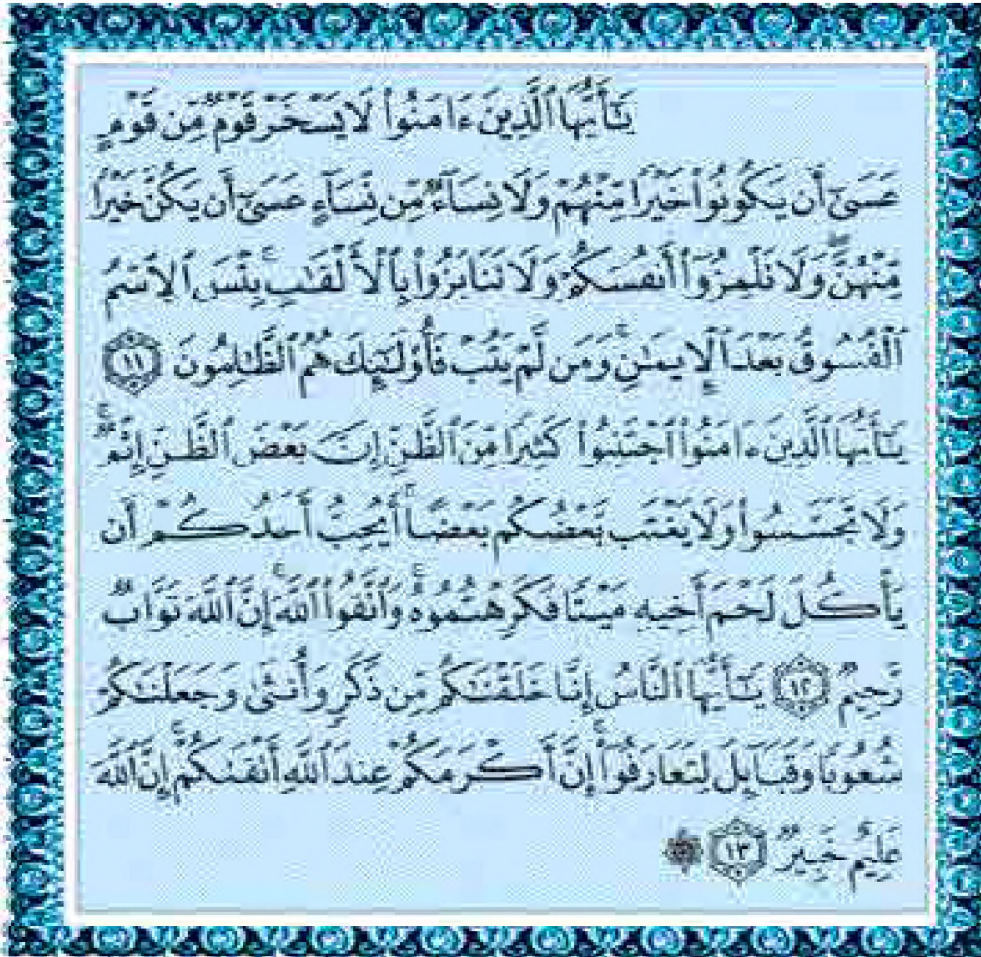 يَٰٓأَيُّهَا ٱلَّذِينَ ءَامَنُوا۟ لَا يَسْخَرْ قَوْمٌ مِّن قَوْمٍ
عَسَىٰٓ أَن يَكُونُوا۟ خَيْرًا مِّنْهُمْ وَلَا نِسَآءٌ مِّن نِّسَآءٍ عَسَىٰٓ أَن يَكُنَّ خَيْرًا
مِّنْهُنَّ ۖ وَلَا تَلْمِزُوٓا۟ أَنفُسَكُمْ وَلَا تَنَابَزُوا۟ بِٱلْأَلْقَٰبِ ۖ بِئْسَ ٱلِٱسْمُ
ٱلْفُسُوقُ بَعْدَ ٱلْإِيمَٰنِ ۚ وَمَن لَّمْ يَتُبْ فَأُو۟لَٰٓئِكَ هُمُ ٱلظَّٰلِمُونَ ١١
يَٰٓأَيُّهَا ٱلَّذِينَ ءَامَنُوا۟ ٱجْتَنِبُوا۟ كَثِيرًا مِّنَ ٱلظَّنِّ إِنَّ بَعْضَ ٱلظَّنِّ إِثْمٌ ۖ
وَلَا تَجَسَّسُوا۟ وَلَا يَغْتَب بَّعْضُكُم بَعْضًا ۚ أَيُحِبُّ أَحَدُكُمْ أَن
يَأْكُلَ لَحْمَ أَخِيهِ مَيْتًا فَكَرِهْتُمُوهُ ۚ وَٱتَّقُوا۟ ٱللَّهَ ۚ إِنَّ ٱللَّهَ تَوَّابٌ
رَّحِيمٌ ١٢ يَٰٓأَيُّهَا ٱلنَّاسُ إِنَّا خَلَقْنَٰكُم مِّن ذَكَرٍ وَأُنثَىٰ وَجَعَلْنَٰكُمْ
شُعُوبًا وَقَبَآئِلَ لِتَعَارَفُوٓا۟ ۚ إِنَّ أَكْرَمَكُمْ عِندَ ٱللَّهِ أَتْقَىٰكُمْ ۚ إِنَّ ٱللَّهَ
عَلِيمٌ خَبِيرٌ ١٣